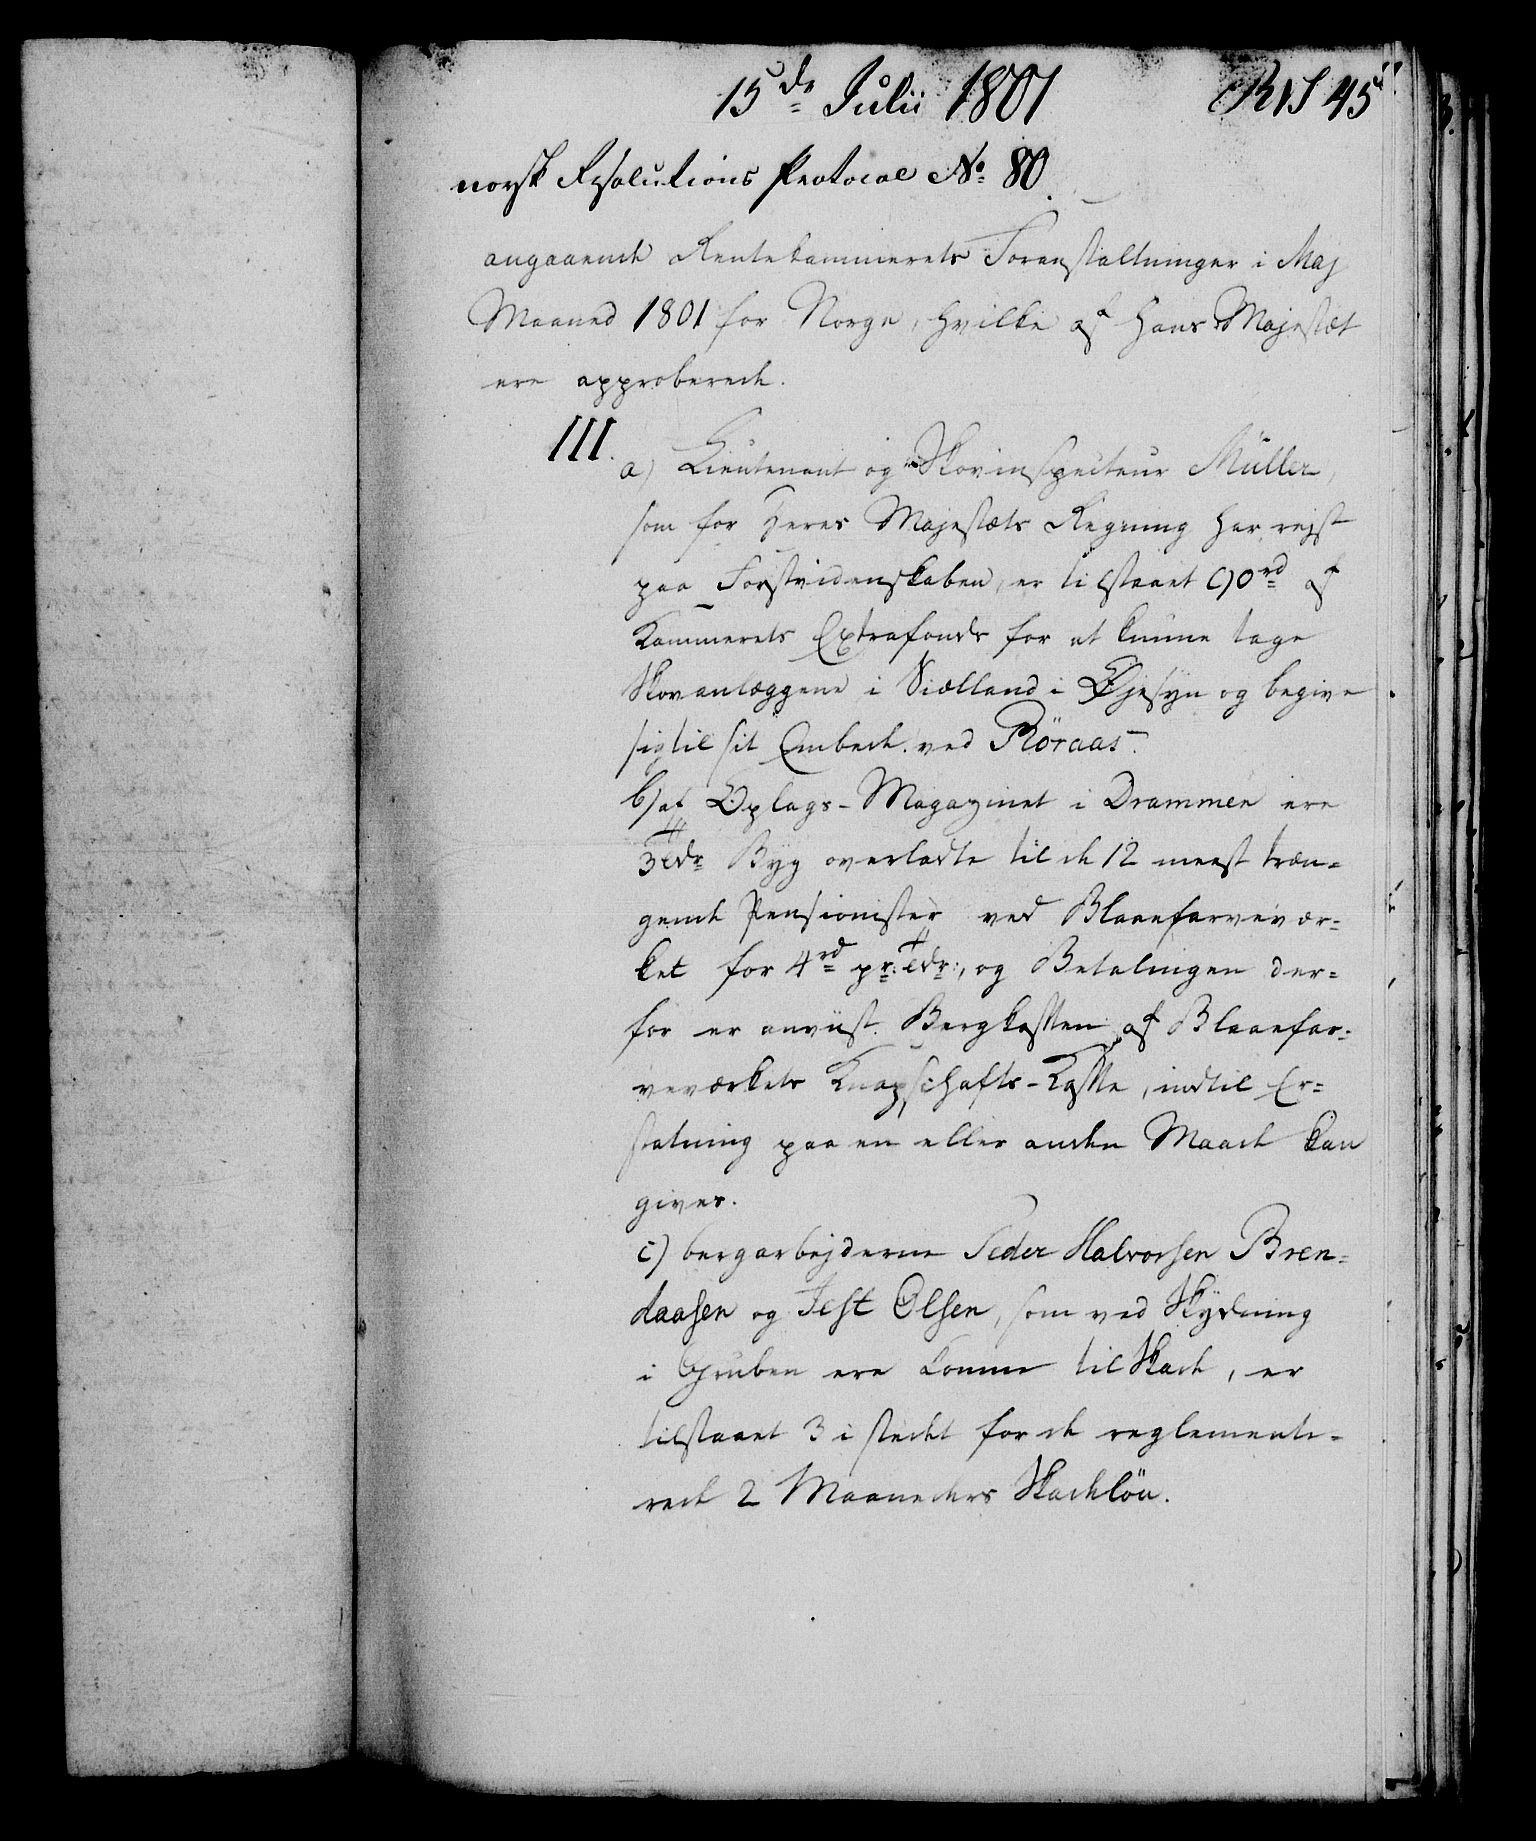 15de Julii 1801
norsk Resolutions Protocol No. 80
angaaende Rentekammerets Foranstaltninger i Maj
Maaned 1801 for Norge, hvilke af Hans Majestæt
ere approberede.
III.
a) Lieutenant og Skovinspecteur Müller,
som for Deres Majestæts Regning har rejst
paa Forstvidenskaben, er tilstaaet 90 rd af
Kammerets Extrafonds for at kunne tage
Skovanlæggene i Siælland i Øjesyn og begive
sig til sit Embede ved Röraas.
b) af Oplags-Magazinet i Drammen ere
3 Tdr Byg overladte til de 12 meest træn-
gende Pensionister ved Blaaefarvevær-
ket for 4 rd pr: Tdr:, og Betalingen der-
for er anviist Bergkassen af Blaaefar-
veværkets Knapschafts-Kasse, indtil Er-
statning paa en eller anden Maade kan
gives.
c) bergarbejderne Peder Halvorsen Bren-
daasen og Jest Olsen, som ved Skydning
i Gruben ere komne til Skade, er
tilstaaet 3 i stedet for de reglemente-
rede 2 Maaneders Skadelön.